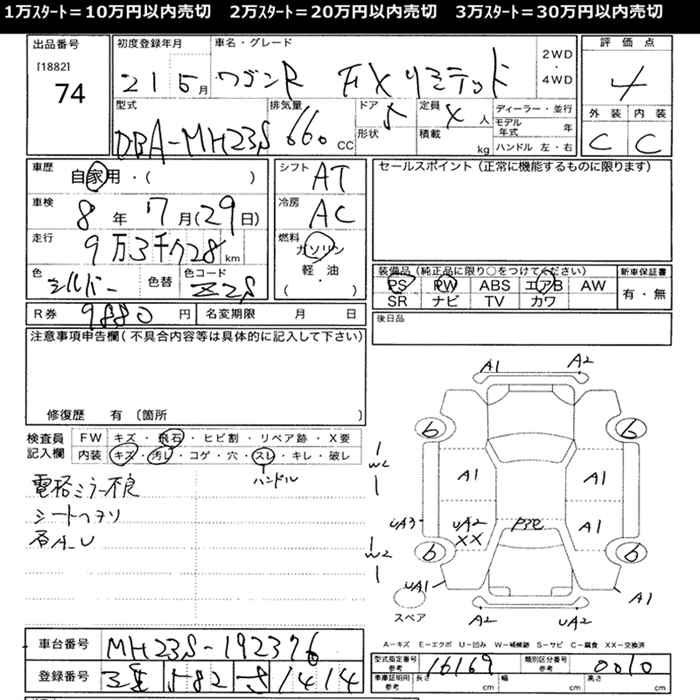 1万ｽﾀｰﾄ＝10万円以内売切　2万ｽﾀｰﾄ＝20万円以内売切　3万ｽﾀｰﾄ＝30万円以内売切
出品番号
[1882]
74
初度登録年月
21 5月
車名・グレード
ワゴンR FXリミテッド
2WD
・
4WD
評価点
4
外装 内装
C C
型式
DBA-MH23S
排気量
660 CC
ドア
5
形状
定員
4人
積載
kg
ディーラー・並行
モデル年式 年
ハンドル 左・右
車歴
自家用・( )
車検
8年7月(29日)
走行
9万3千728km
色
シルバー
色替
色コード
Z2S
シフト AT
冷房 AC
燃料
ガソリン
軽・油
( )
セールスポイント (正常に機能するものに限ります)
装備品 (純正品に限り○をつけてください)
PS PW ABS エアB AW
SR ナビ TV カワ
新車保証書
有・無
R券 9880円
名変期限 月 日
後日品
注意事項申告欄 (不具合内容等は具体的に記入して下さい)
修復歴 有 〔箇所 〕
検査員記入欄
FW キズ・飛石・ヒビ割・リペア跡・X要
内装 キズ・汚レ・コゲ・穴・スレ・キレ・破レ
ハンドル
電格ミラー不良
A1 A2
6 6
W2
A1 A1
UA3 UA2 XX A1
W2
6 6
UA1 A1
スペア
A2 UA2
A-キズ E-エクボ U-凹み W-補修跡 S-サビ C-腐食 XX-交換済
車台番号 MH23S-192376
登録番号
582 さ 1414
型式指定番号 参考 16169
類別区分番号 参考 0010
車庫証明用 参考 長さ cm 幅 cm 高さ cm